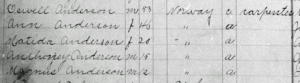 Anderson m 53 Norway a carpenter
Ann Anderson f 45 " a
Matilda Anderson f 20 " a
Anthony Anderson m 15 " a
Anderson m 12 " a